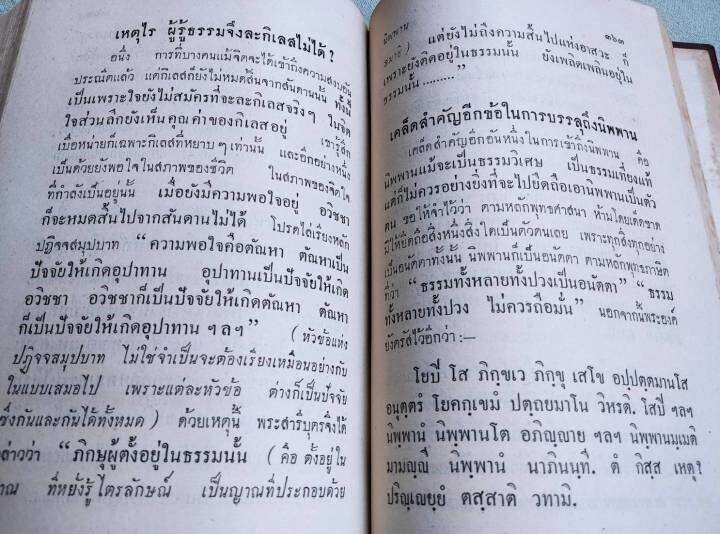 เหตุไร ผู้รู้ธรรมจึงละกิเลสไม่ได้ ?
อนึ่ง การที่บางคนแม้จิตจะได้เข้าถึงความสงบอัน
ประณีตแล้ว แต่กิเลสก็ยังไม่หมดสิ้นจากสันดานนั้น ทั้งนี้
เป็นเพราะใจยังไม่สมัครที่จะละกิเลสจริงๆ ในจิต
ใจส่วนลึกยังเห็นคุณค่าของกิเลสอยู่ เขารู้สึก
เบื่อหน่ายก็เฉพาะกิเลสที่หยาบๆ เท่านั้น และอีกอย่างหนึ่ง
เป็นด้วยยังพอใจในสภาพของชีวิต ในสภาพของจิตใจ
ที่กำลังเป็นอยู่นั้น เมื่อยังมีความพอใจอยู่ อวิชชา
ก็จะหมดสิ้นไปจากสันดานไม่ได้ โปรดไล่เรียงหลัก
ปฏิจจสมุปบาท “ความพอใจคือตัณหา ตัณหาเป็น
ปัจจัยให้เกิดอุปาทาน อุปาทานเป็นปัจจัยให้เกิด
อวิชชา อวิชชาก็เป็นปัจจัยให้เกิดตัณหา ตัณหา
ก็เป็นปัจจัยให้เกิดอุปาทาน ฯลฯ” (หัวข้อแห่ง
ปฏิจจสมุปบาท ไม่ใช่จำเป็นจะต้องเรียงเหมือนอย่างกับ
ในแบบเสมอไป เพราะแต่ละหัวข้อ ต่างก็เป็นปัจจัย
ซึ่งกันและกันได้ทั้งหมด) ด้วยเหตุนี้ พระสารีบุตรจึงได้
กล่าวว่า “ภิกษุผู้ตั้งอยู่ในธรรมนั้น (คือ ตั้งอยู่ใน
ที่หยั่งรู้ไตรลักษณ์ เป็นญาณที่ประกอบด้วย
นิพพาน ๖๓
สมาธิ) แต่ยังไม่ถึงความสิ้นไปแห่งอาสวะ ก็
เพราะยังติดอยู่ในธรรมนั้น ยังเพลิดเพลินอยู่ใน
ธรรมนั้น .........”
เคล็ดสำคัญอีกข้อในการบรรลุถึงนิพพาน
เคล็ดสำคัญอีกอันหนึ่งในการเข้าถึงนิพพาน คือ
นิพพานแม้จะเป็นธรรมวิเศษ เป็นธรรมเที่ยงแท้
แต่ก็ไม่ควรอย่างยิ่งที่จะไปยึดถือเอานิพพานเป็นตัว
ตน ขอให้จำไว้ว่า ตามหลักพุทธศาสนา ห้ามโดยเด็ดขาด
มิให้ยึดถือสิ่งหนึ่งสิ่งใดเป็นตัวตนเลย เพราะทุกสิ่งทุกอย่าง
เป็นอนัตตาทั้งนั้น นิพพานก็เป็นอนัตตา ตามหลักพุทธภาษิต
ที่ว่า “ธรรมทั้งหลายทั้งปวงเป็นอนัตตา” “ธรรม
ทั้งหลายทั้งปวง ไม่ควรถือมั่น” นอกจากนี้พระองค์
ยังตรัสไว้อีกว่า :—
โยปิ โส ภิกฺขเว ภิกฺขุ เสโข อปฺปตฺตมานโส
อนุตฺตรํ โยคกฺเขมํ ปตฺถยมาโน วิหรติ. โสปิ ฯลฯ
นิพฺพานํ นิพฺพานโต อภิญฺญาย ฯลฯ นิพฺพานมฺเมติ
มามญฺญี นิพฺพานํ นาภินนฺที. ตํ กิสฺส เหตุ?
ปริญฺเญยฺยํ ตสฺสาติ วทามิ.